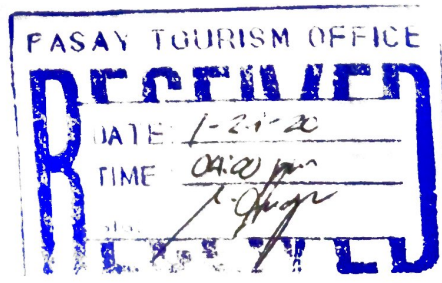 PASAY TOURISM OFFICE
RECEIVED
DATE: 1-21-20
TIME: 04:00 pm